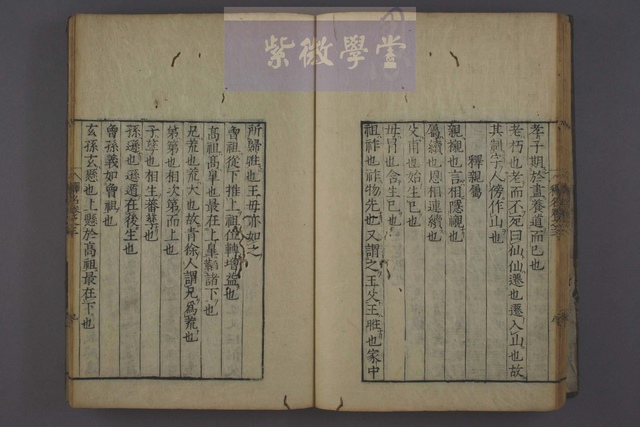 紫微學堂
孝子期於盡養道而已也
老朽也老而不死曰仙仙遷也遷入山也故
其制字人傍作山也
釋親屬
親襯也言相隱襯也
屬續也恩相連續也
父甫也始生己也
母冒也含生己也
祖祚也祚物先也又謂之王父王暀也家中
所歸暀也王母亦如之
曾祖從下推上祖位轉增益也
高祖高皐也最在上皐韜諸下也
兄荒也荒大也故青徐人謂兄爲荒也
弟第也相次第而上也
子孳也相生蕃孳也
孫遜也遜遁在後生也
曾孫義如曾祖也
玄孫玄懸也上懸於高祖最在下也